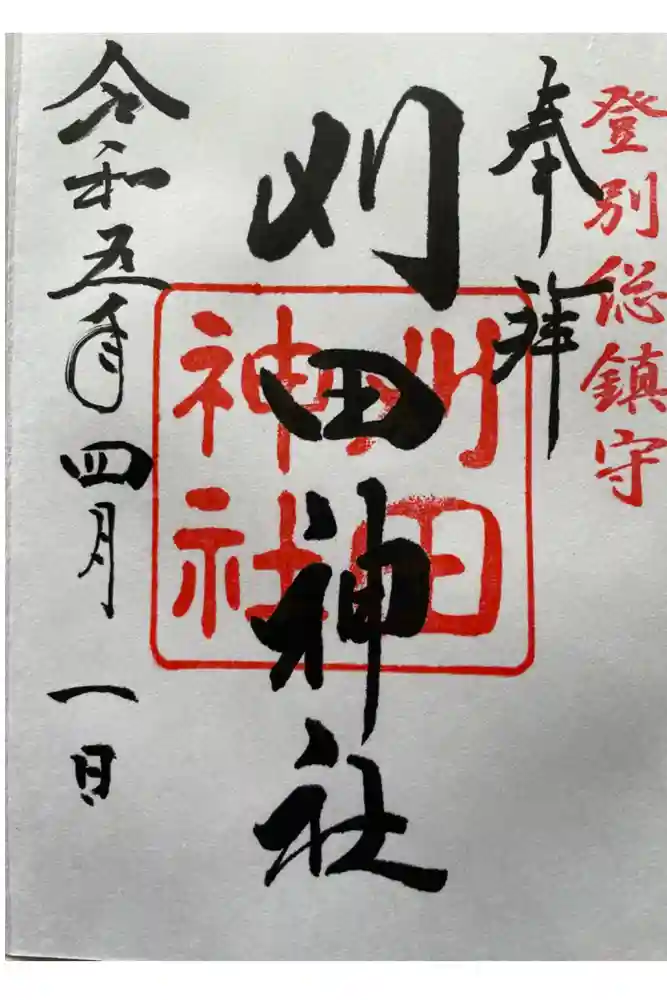 登別総鎮守
奉拝
刈田神社
刈田
神社
令和五年四月一日